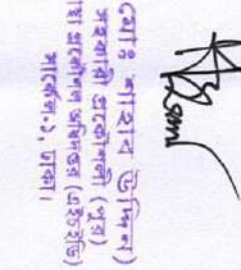 (মোঃ শাহাব উদ্দিন)
সহকারী প্রকৌশলী (পুর)
স্বাস্থ্য প্রকৌশল অধিদপ্তর (এইচইডি)
সার্কেল-১, ঢাকা।